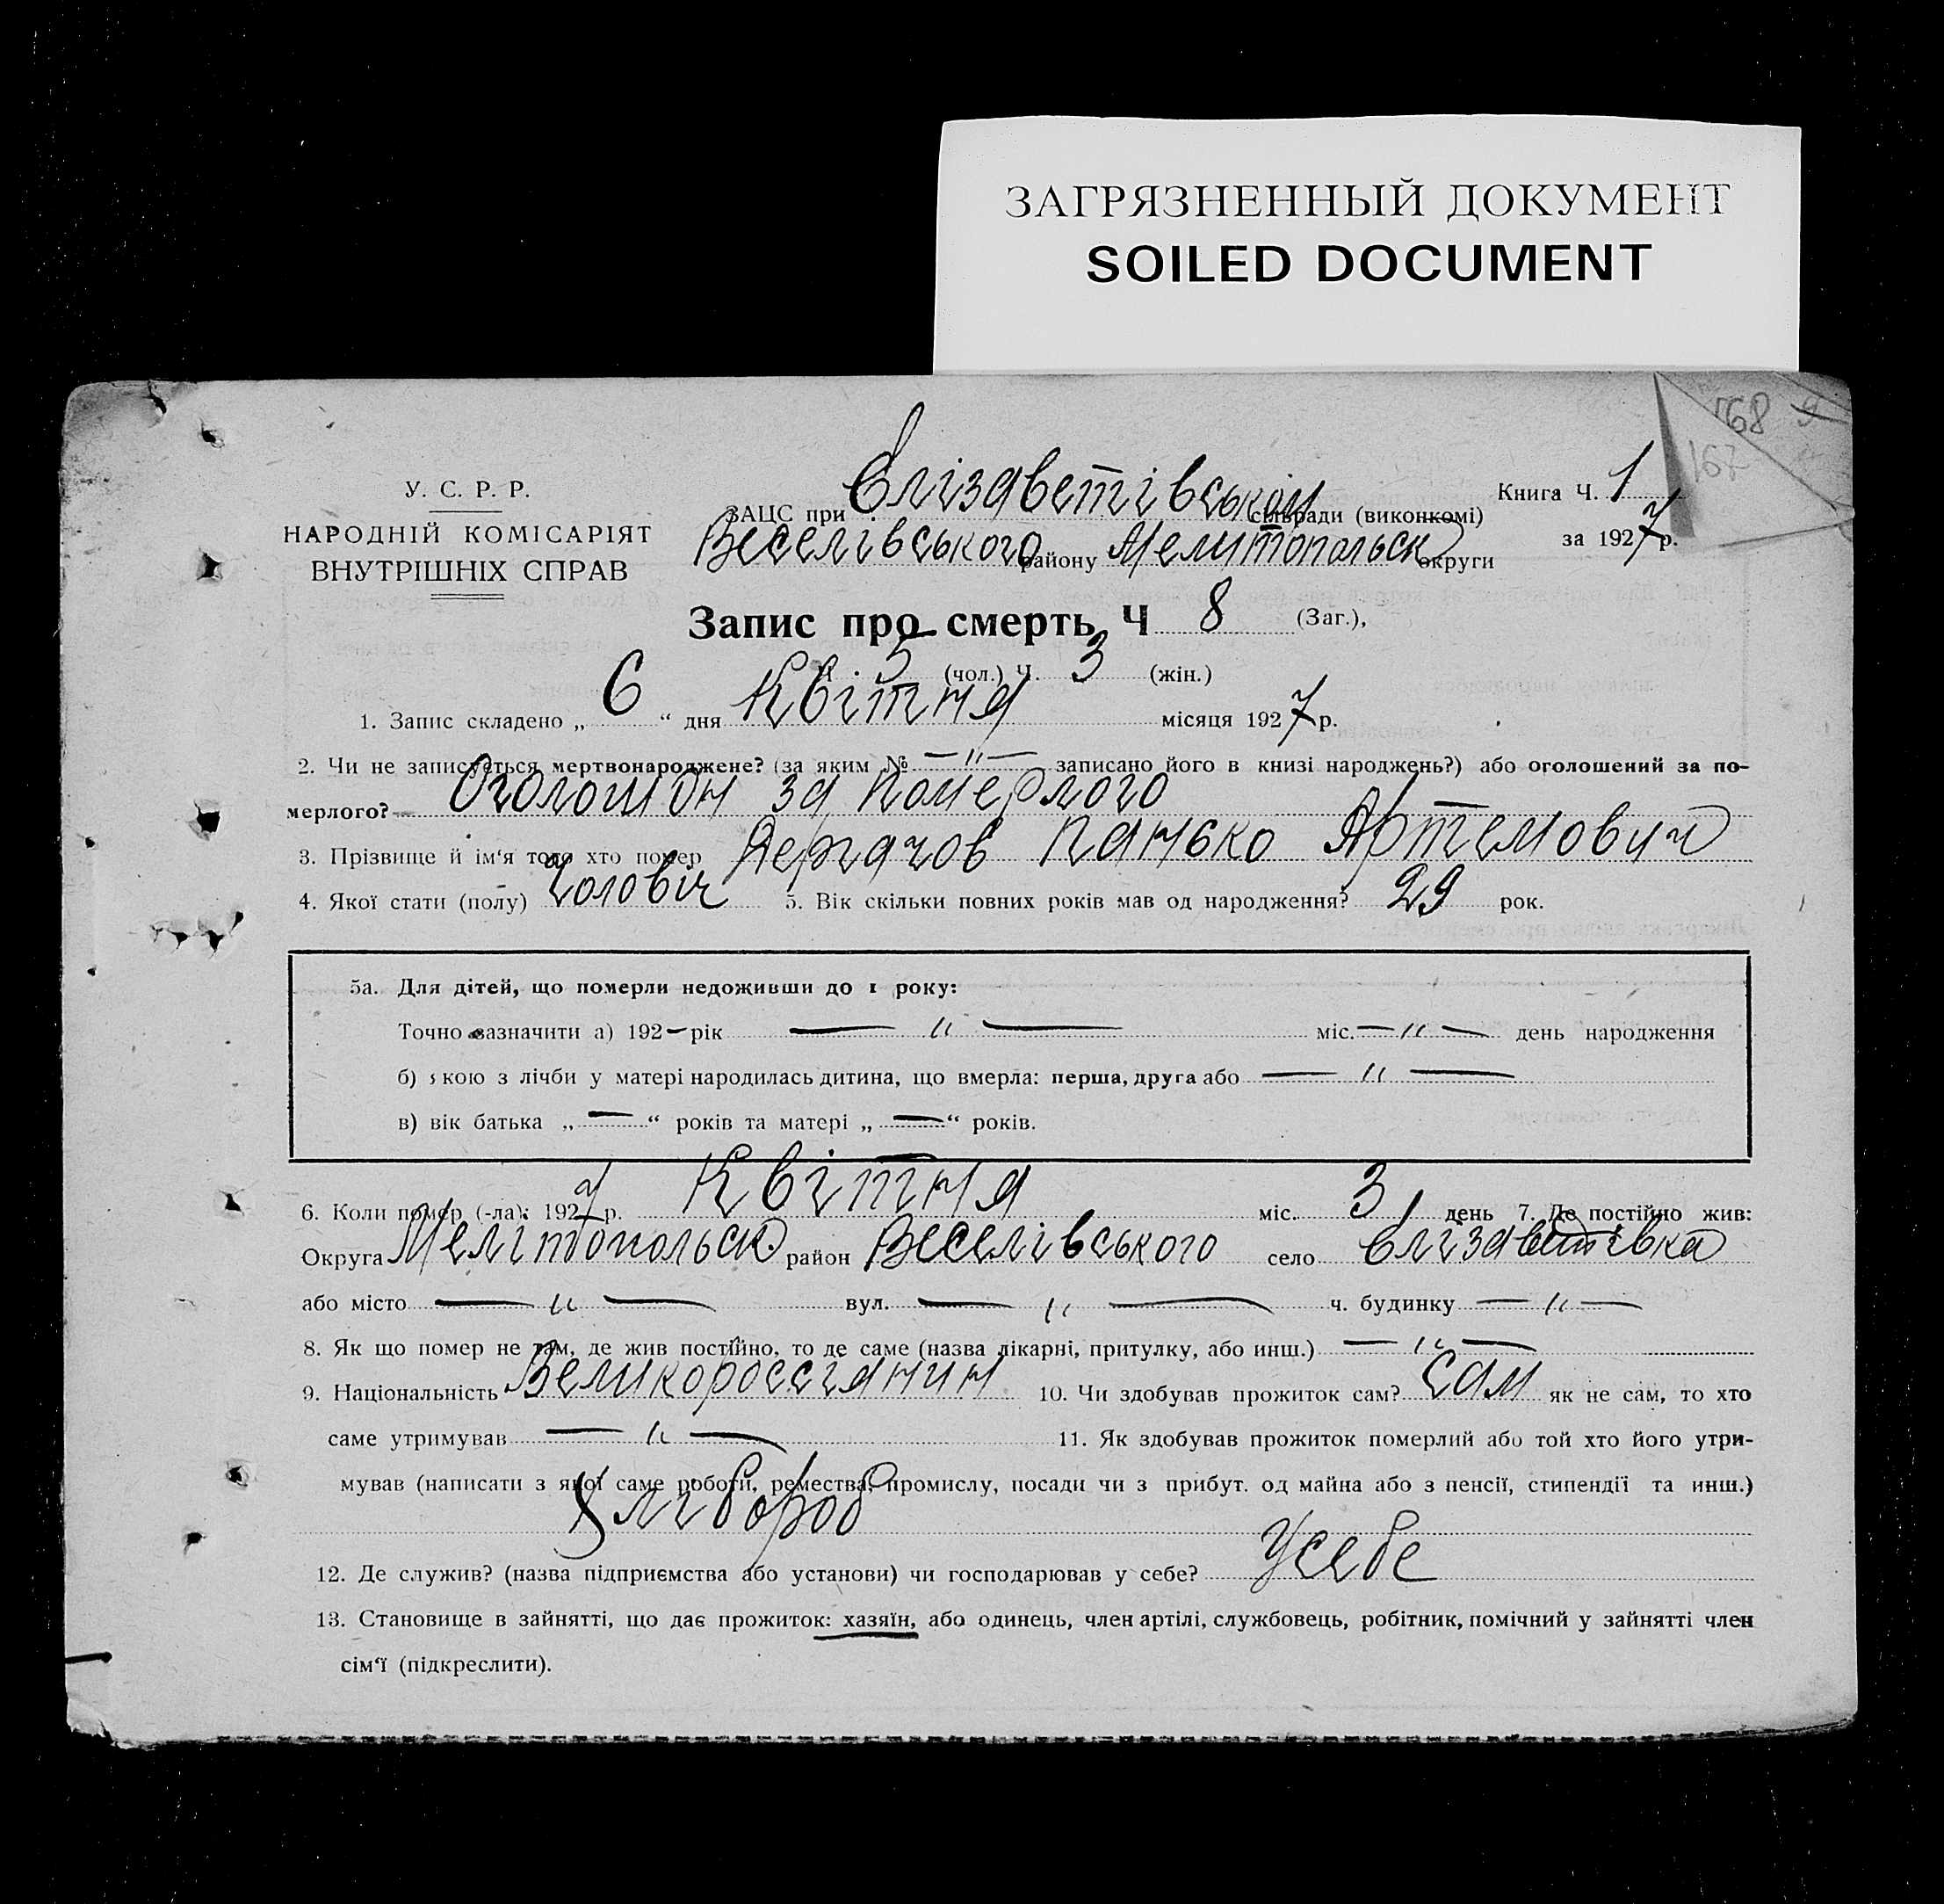 ЗАГРЯЗНЕННЫЙ ДОКУМЕНТ
SOILED DOCUMENT
168 9
167
У. С. Р. Р.
НАРОДНІЙ КОМІСАРІЯТ
ВНУТРІШНІХ СПРАВ
ЗАЦС при Єлізаветівськом сільради (виконкомі)
Веселівського району Мелитопольск округи
Книга Ч. 1
за 1927 р.
Запис про смерть, Ч 8 (Заг.),
Ч. 5 (чол.) Ч. 3 (жін.)
1. Запис складено „ 6 “ дня Квітня місяця 1927 р.
2. Чи не записується мертвонароджене? (за яким № — " — записано його в книзі народжень?) або оголошений за по-
мерлого? Оголошон за Померлого
3. Прізвище й ім‘я того хто помер Дергачов Панько Артемович
4. Якої стати (полу) Чоловіч 5. Вік скільки повних років мав од народження? 29 рок.
5а. Для дітей, що померли недоживши до 1 року:
Точно зазначити а) 192 — рік — " — міс. — " — день народження
б) якою з лічби у матері народилась дитина, що вмерла: перша, друга або — " —
в) вік батька „ — “ років та матері „ — “ років.
6. Коли помер (-ла): 1927 р. Квітня міс. 3 день 7. Де постійно жив:
Округа Мелітопольск район Веселівського село Єлізаветівка
або місто — " — вул. — " — ч. будинку — " —
8. Як що помер не там, де жив постійно, то де саме (назва лікарні, притулку, або инш.) — " —
9. Національність Великороссіянин 10. Чи здобував прожиток сам? Сам як не сам, то хто
саме утримував — " — 11. Як здобував прожиток померлий або той хто його утри-
мував (написати з якої саме роботи, ремества, промислу, посади чи з прибут. од майна або з пенсії, стипендії та инш.)
Хлібороб
12. Де служив? (назва підприємства або установи) чи господарював у себе? Усебе
13. Становище в зайнятті, що дає прожиток: хазяїн, або одинець, член артілі, службовець, робітник, помічний у зайнятті член
сім‘ї (підкреслити).